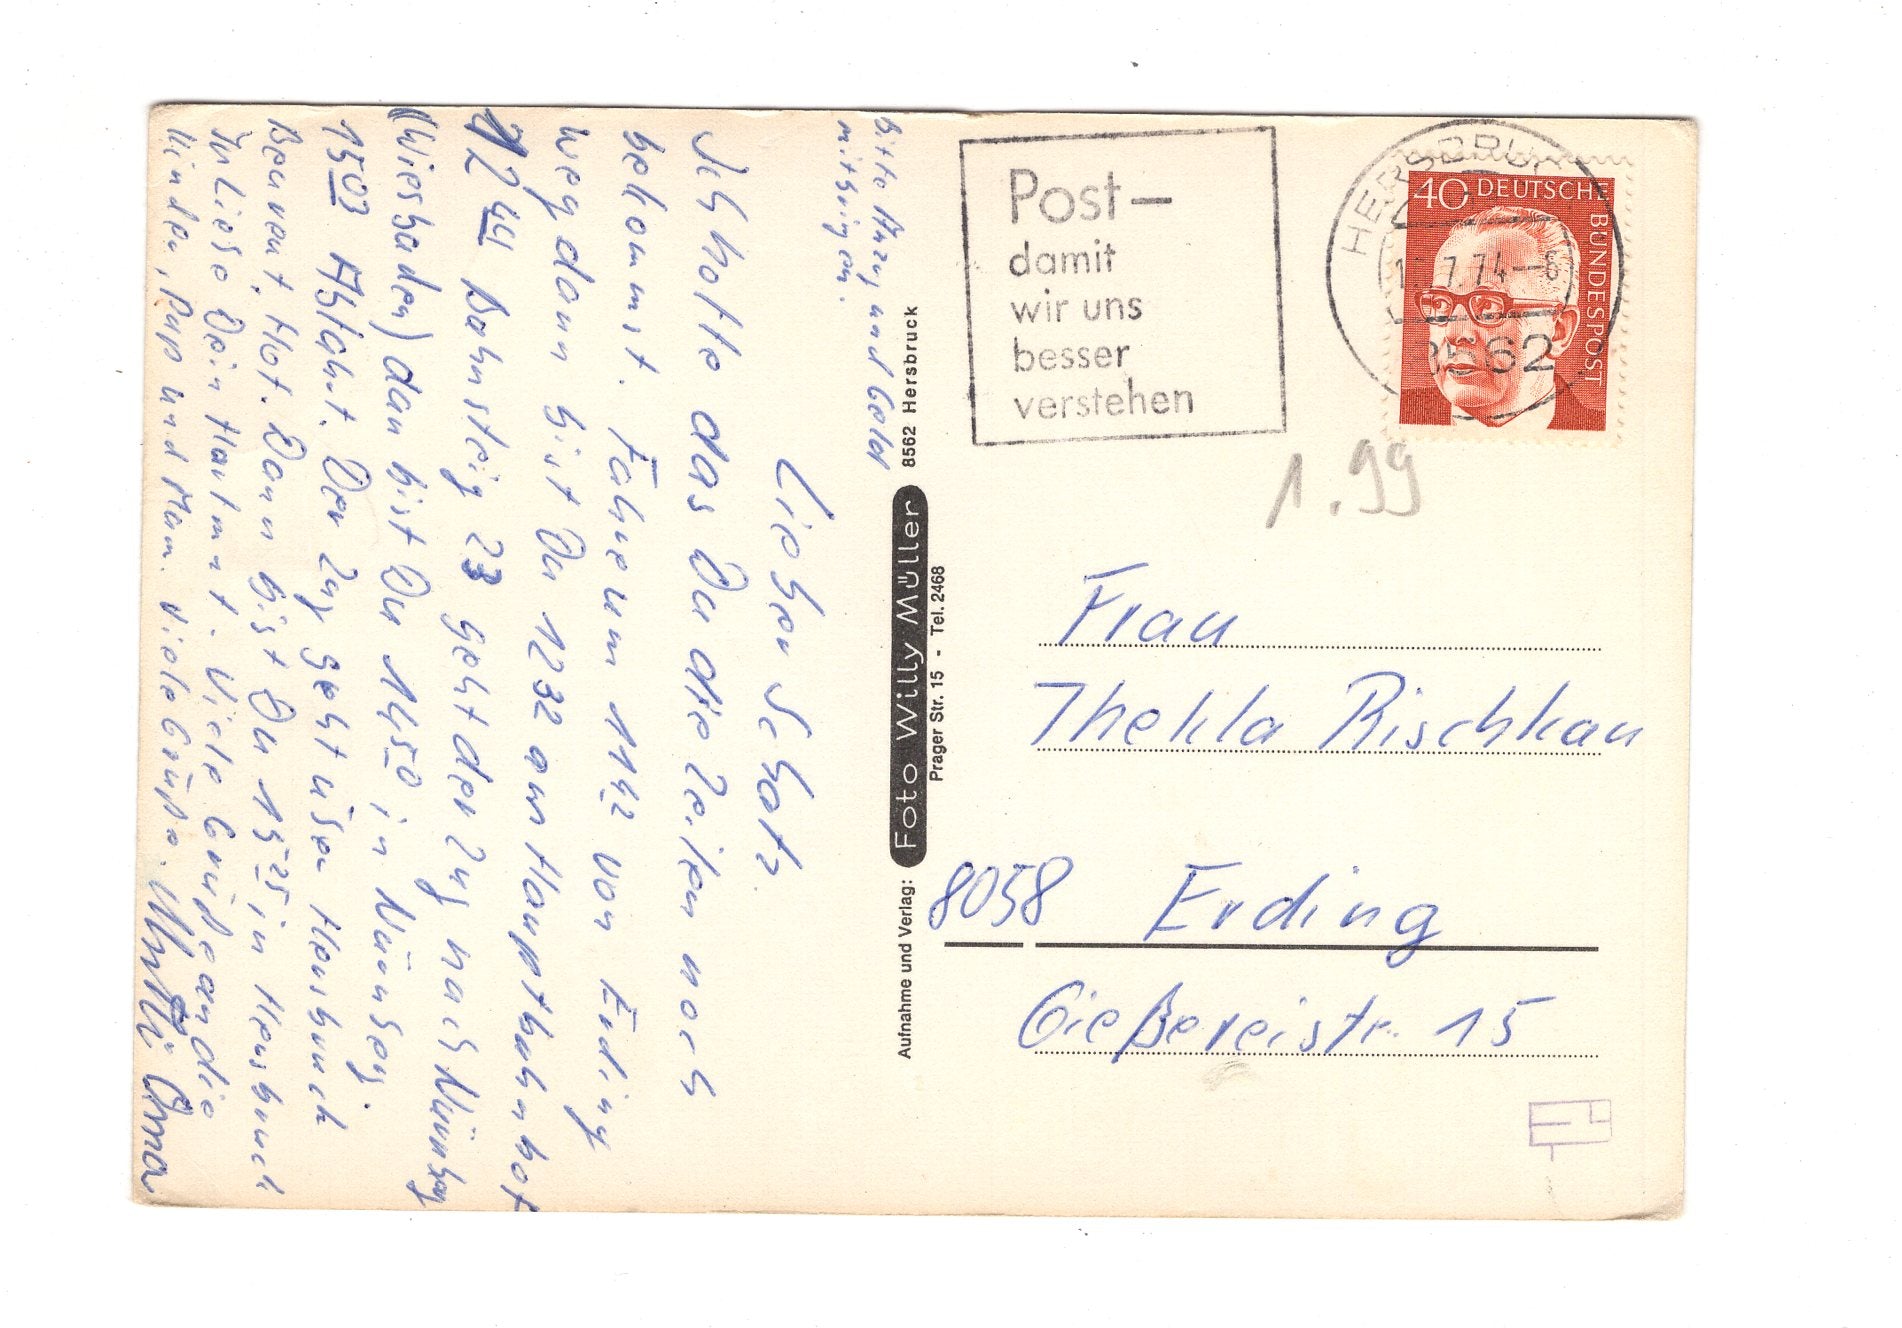 Bitte Anzug und Gold
mitbringen.
Lieber Schatz.
Ich hoffe das Du die Zeilen noch
bekommst. Fahre um 11 42 von Erding
weg dann bist Du 12 32 am Hauptbahnhof
12 44 Bahnsteig 23 geht der Zug nach Nürnberg
(Wiesbaden) dan bist Du 14 50 in Nürnberg.
15 03 Abfahrt. Der Zug geht über Hersbruck
Bayreut, Hof. Dann bist Du 15 25 in Hersbruck
In Liebe Dein Hartmut. Viele Grüße an die
Kinder, Pap und Mam. Viele Grüße. Mutti Oma
Aufnahme und Verlag: Foto Willy Müller 8562 Hersbruck
Prager Str. 15 - Tel. 2468
Post–
damit
wir uns
besser
verstehen
HERSBRUCK
7.74-8
8562
40 DEUTSCHE BUNDESPOST
1.99
Frau
Thekla Rischkau
8058 Erding
Gießereistr. 15